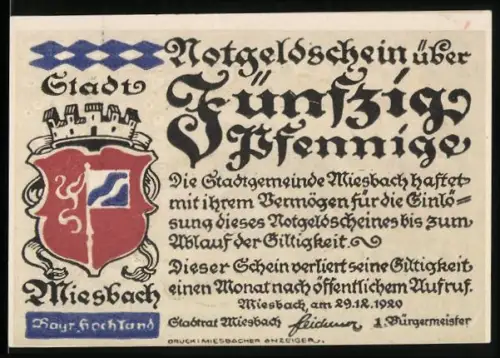 Notgeldschein über
Fünfzig
Pfennige
Stadt
Miesbach
Bayr. Hochland
Die Stadtgemeinde Miesbach haftet
mit ihrem Vermögen für die Einlö-
sung dieses Notgeldscheines bis zum
Ablauf der Giltigkeit.
Dieser Schein verliert seine Giltigkeit
einen Monat nach öffentlichem Aufruf.
Miesbach, am 29.12.1920
Stadtrat Miesbach 1. Bürgermeister
DRUCK: MIESBACHER ANZEIGER.